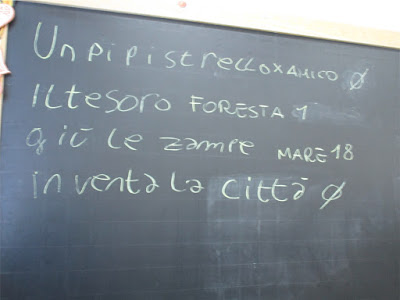 Un pipistrello x amico Ø
Il tesoro FORESTA 1
giù le zampe MARE 18
inventa la città Ø